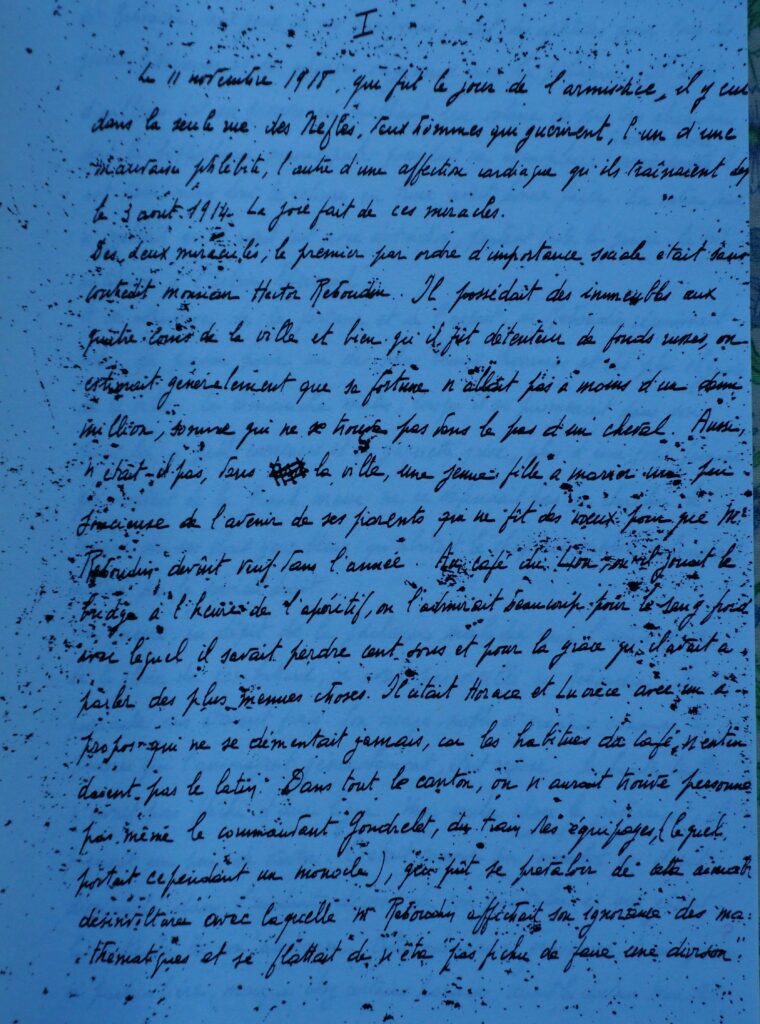 I
Le 11 novembre 1918, qui fut le jour de l'armistice, il y eut
dans la seule rue des Nèfles, deux hommes qui guérirent, l'un d'une
mauvaise phlébite, l'autre d'une affection cardiaque qu'ils traînaient dep
le 3 août 1914. La joie fait de ces miracles.
Des deux miraculés, le premier par ordre d'importance sociale était sans
contredit monsieur Hector Reboudin. Il possédait des immeubles aux
quatre coins de la ville et bien qu'il fût détenteur de fonds russes, on
estimait généralement que sa fortune n'allait pas à moins d'un demi
million, somme qui ne se trouve pas dans le pas d'un cheval. Aussi,
n'était-il pas, dans la ville, une jeune fille à marier un peu
soucieuse de l'avenir de ses parents qui ne fît des vœux pour que Mr
Reboudin devînt veuf dans l'année. Au café du Lion où il jouait le
bridge à l'heure de l'apéritif, on l'admirait beaucoup pour le sang froid
avec lequel il savait perdre cent sous et pour la grâce qu'il avait à
parler des plus menues choses. Il citait Horace et Lucrèce avec un à-
propos qui ne se démentait jamais, car les habitués du café n'enten
daient pas le latin. Dans tout le canton, on n'aurait trouvé personne
pas même le commandant Gondrelet, du train des équipages, (lequel
portait cependant un monocle), qui pût se prévaloir de cette aimable
désinvolture avec laquelle Mr Reboudin affichait son ignorance des ma-
thématiques et se flattait de n'être "pas fichu de faire une division".